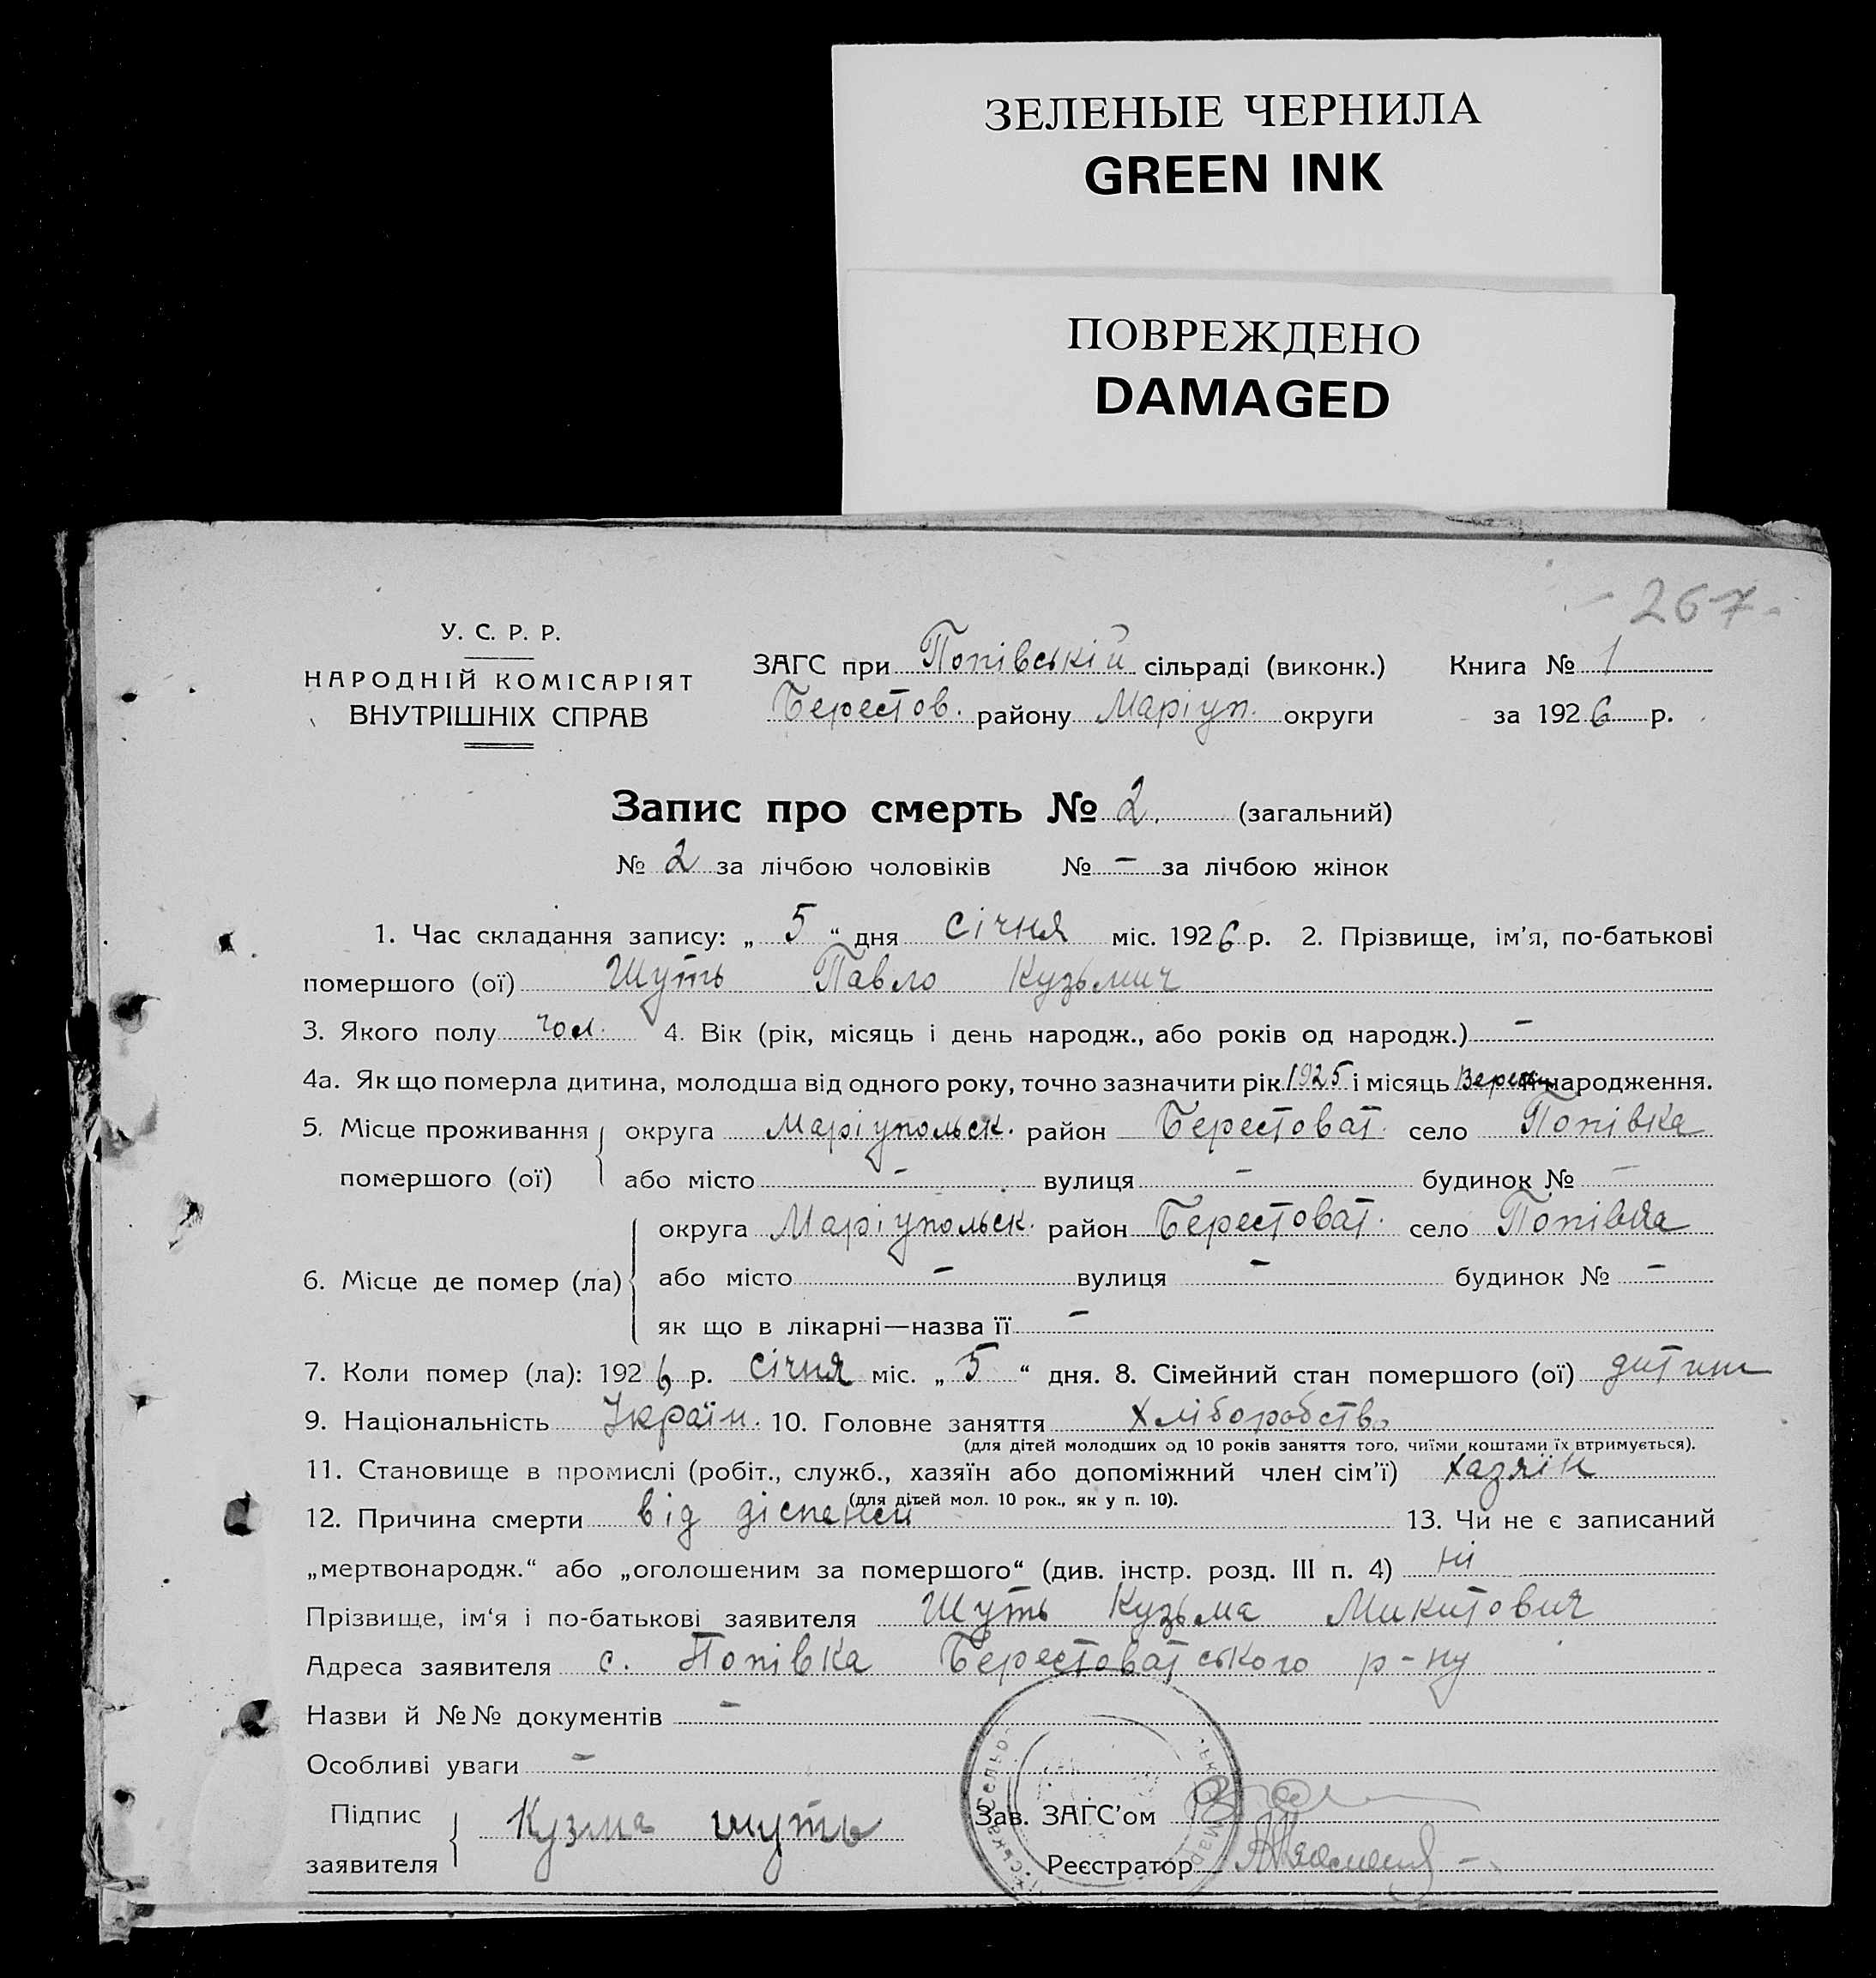 ЗЕЛЕНЫЕ ЧЕРНИЛА
GREEN INK
ПОВРЕЖДЕНО
DAMAGED
- 267 -
У. С. Р. Р.
НАРОДНІЙ КОМІСАРІЯТ
ВНУТРІШНІХ СПРАВ
ЗАГС при Попівській сільраді (виконк.) Книга № 1
Берестов. району Маріуп. округи за 1926 р.
Запис про смерть № 2. (загальний)
№ 2 за лічбою чоловіків № - за лічбою жінок
1. Час складання запису: „ 5 “ дня січня міс. 1926 р. 2. Прізвище, ім'я, по-батькові
помершого (ої) Шуть Павло Кузьмич
3. Якого полу чол. 4. Вік (рік, місяць і день народж., або років од народж.) -
4а. Як що померла дитина, молодша від одного року, точно зазначити рік 1925 і місяць народження.
5. Місце проживання округа Маріупольск. район Берестоват. село Попівка
помершого (ої) або місто - вулиця - будинок № -
округа Маріупольск. район Берестоват. село Попівка
6. Місце де помер (ла) або місто - вулиця - будинок № -
як що в лікарні—назва її -
7. Коли помер (ла): 1926 р. січня міс. „ 5 “ дня. 8. Сімейний стан помершого (ої) дитин
9. Національність Україн. 10. Головне заняття хліборобство
(для дітей молодших од 10 років заняття того, чиїми коштами їх втримується).
11. Становище в промислі (робіт., служб., хазяїн або допоміжний член сім'ї) хазяїн
(для дітей мол. 10 рок., як у п. 10).
12. Причина смерти від діспенсії 13. Чи не є записаний
„мертвонародж.“ або „оголошеним за помершого“ (див. інстр. розд. III п. 4) ні
Прізвище, ім'я і по-батькові заявителя Шуть Кузьма Микитович
Адреса заявителя с. Попівка Берестоватського р-ну
Назви й №№ документів -
Особливі уваги -
Підпис
заявителя Кузма шуть
Зав. ЗАГС'ом
Реєстратор